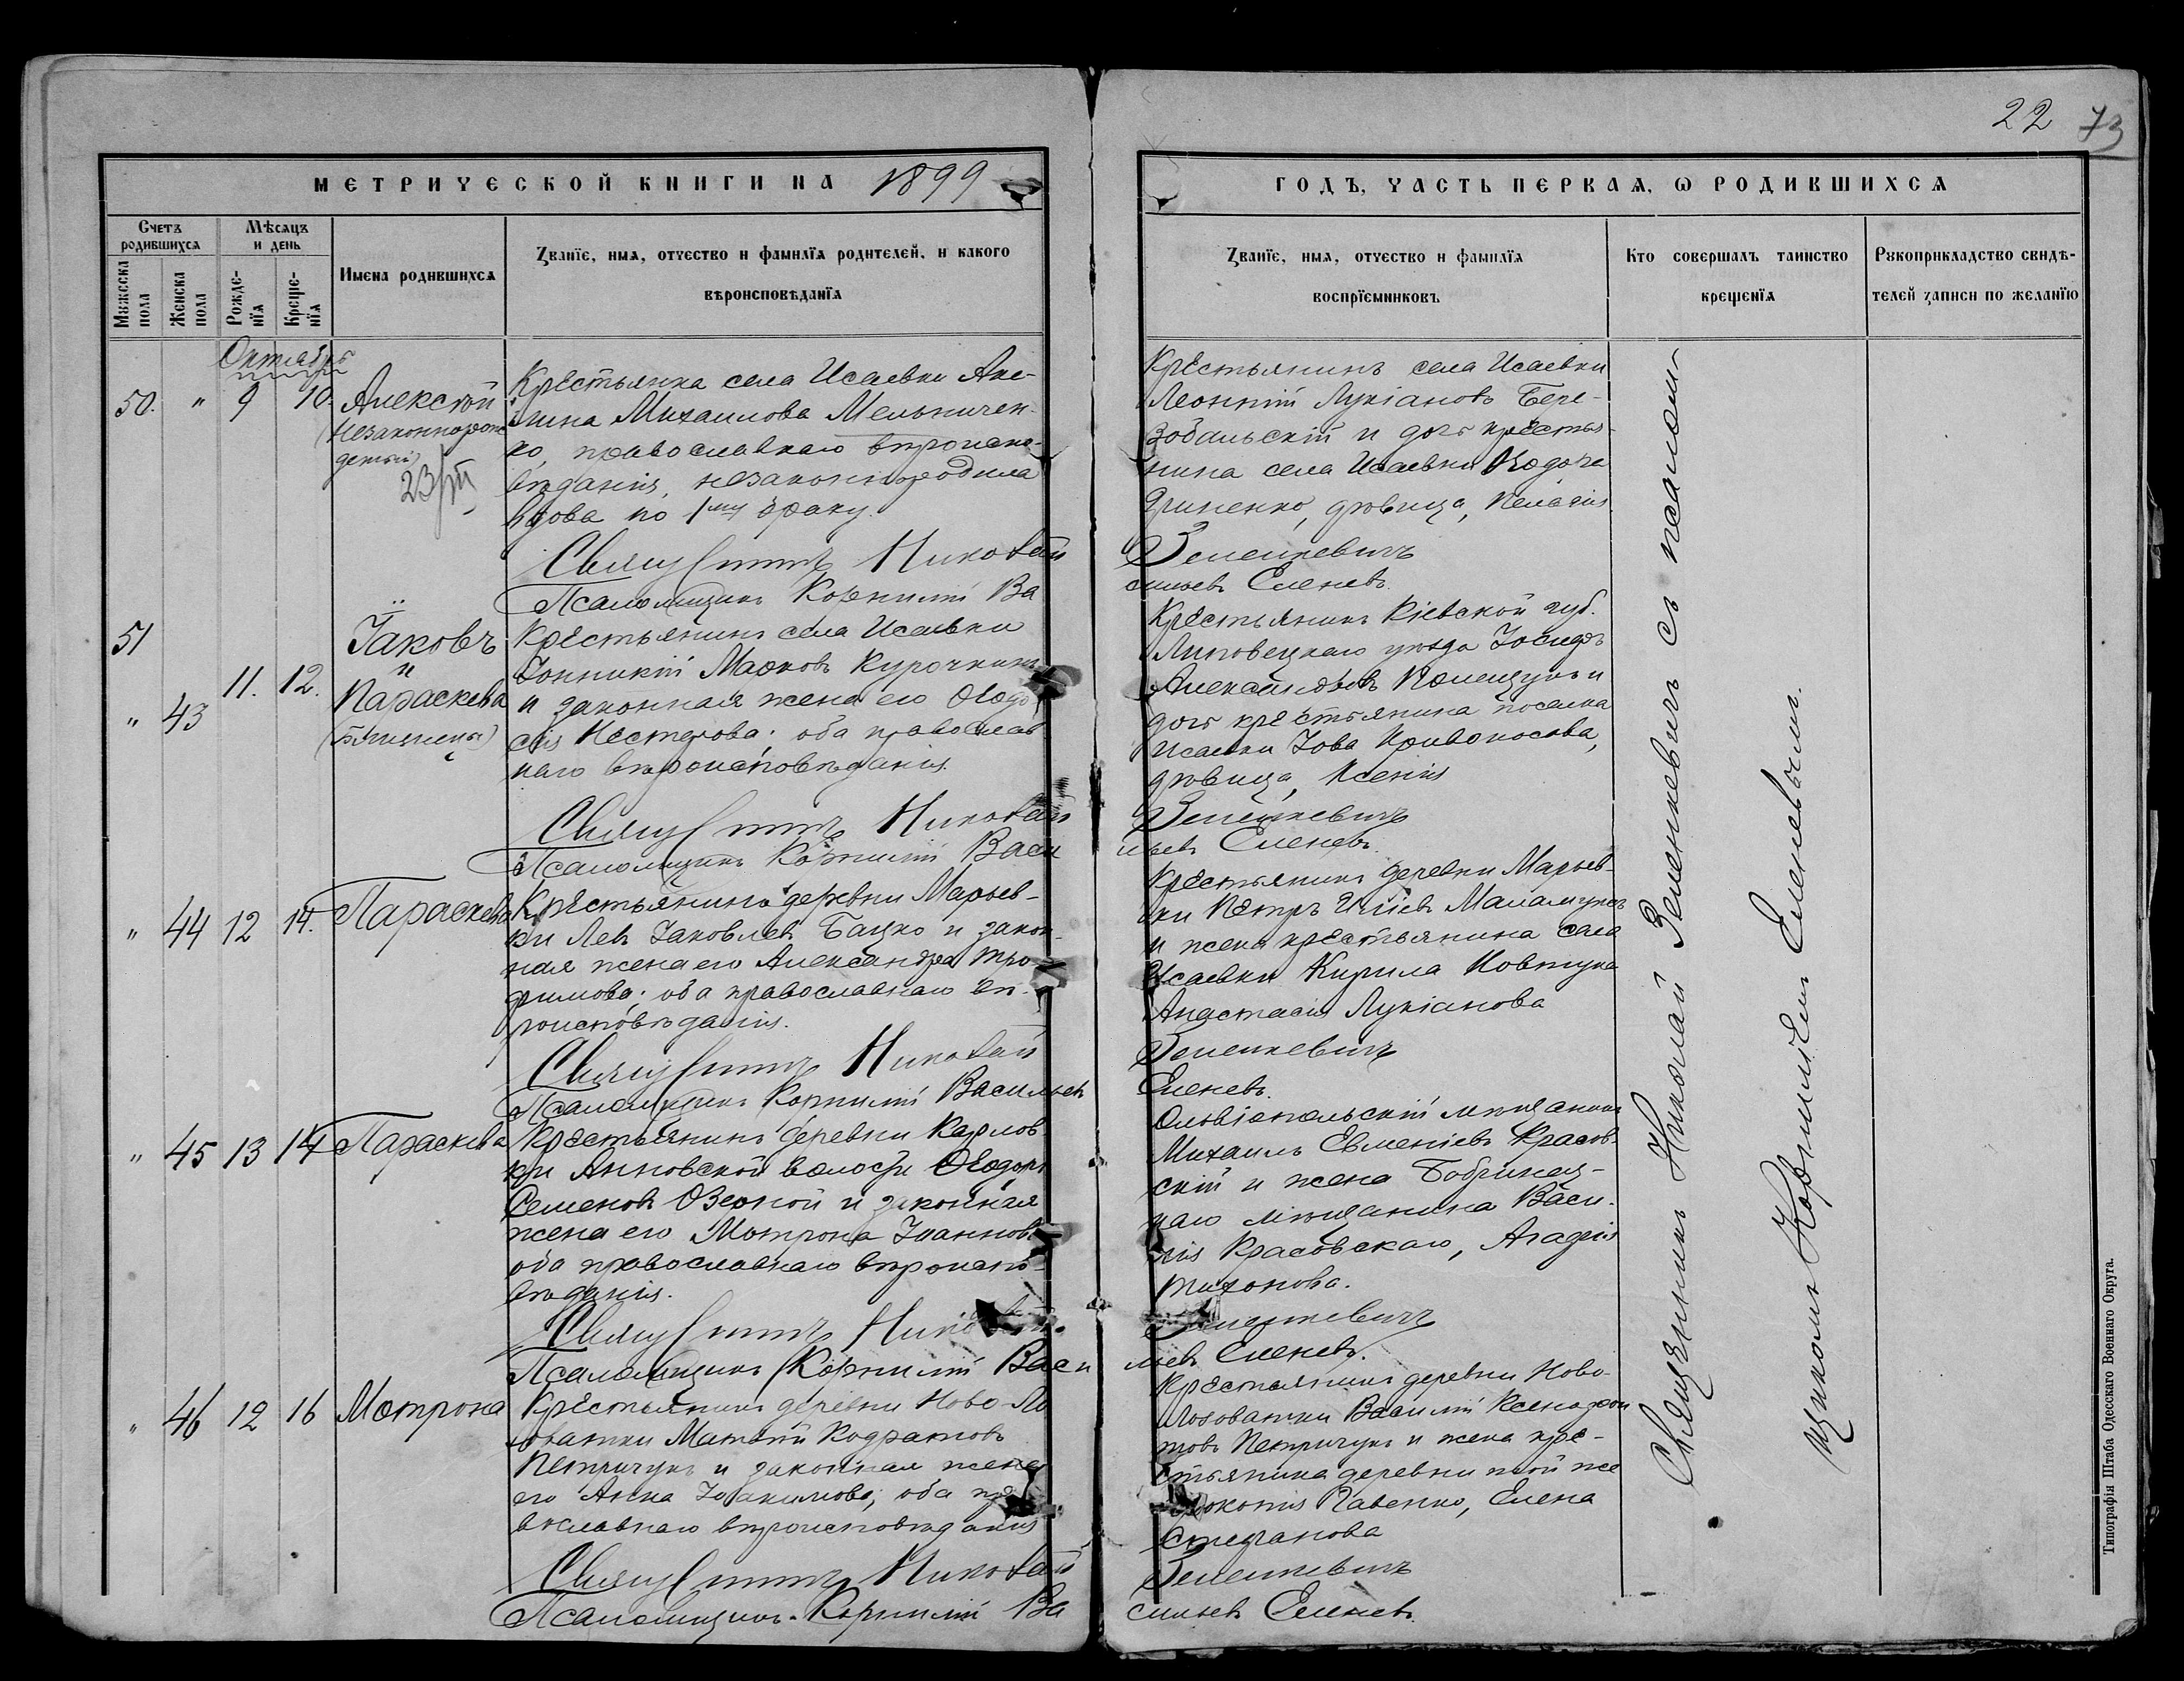 22 73
МЕТРИЧЕСКОЙ КНИГИ НА 1899
ГОДЪ, ЧАСТЬ ПЕРВАЯ, Ѡ РОДИВШИХСЯ
Счетъ родившихся
Мѣсяцъ и день
Мужеска пола
Женска пола
Рожденїя
Крещенїя
Имена родившихся
Званїе, имя, отчество и фамилїя родителей, и какого
вѣроисповѣданїя
Званїе, имя, отчество и фамилїя
воспрїемниковъ
Кто совершалъ таинство
крещенїя
Рукоприкладство свидѣ-
телей записи по желанїю
Октябрь
50. " 9 10. Алексѣй
(незаконнорож
денный)
Крестьянка села Исаевки Аку-
лина Михаилова Мельничен-
ко, православнаго вѣроиспо-
вѣданія, незаконнородила
вдова по 1му браку.
Священникъ Николай
Псаломщикъ Корнилій Ва
Крестьянинъ села Исаевки
Леонтій Лукіановъ Бере-
зовальскій и дочь крестья-
нина села Исаевки Ѳеодора
Гриненко, дѣвица, Пелагія
Зеленкевичъ
сильевъ Еленевъ.
51
" 43 11. 12.
Іаковъ
и
Параскева
(Близнецы)
Крестьянинъ села Исаевки
Іоанникій Марковъ Курочкинъ
и законная жена его Ѳеодо
сія Нестерова; оба православ
наго вѣроисповѣданія.
Священникъ Николай
Псаломщикъ Корнилій Васи
Крестьянинъ Кіевской губ.
Липовецкаго уѣзда Іосифъ
Александровъ и
дочь крестьянина поселка
Исаевки Іова Кривоносова,
дѣвица, Ксенія
Зеленкевичъ
льевъ Еленевъ.
" 44 12 14. Параскева
Крестьянинъ деревни Марьев-
ки Левъ Іаковлевъ Бацко и закон-
ная жена его Александра Тро-
фимова; оба православнаго вѣ-
роисповѣданія.
Священникъ Николай
Псаломщикъ Корнилій Васильевъ
Крестьянинъ деревни Марьев-
ки Петръ Иліевъ
и жена крестьянина села
Исаевки Кирила Ковтуна
Анастасія Лукіанова
Зеленкевичъ
Еленевъ.
" 45 13 14 Параскева
Крестьянинъ деревни Карлов-
ки Анновской волости Ѳеодоръ
Семеновъ Озерной и законная
жена его Мотрона Іоаннова
оба православнаго вѣроиспо-
вѣданія.
Священникъ Николай
Псаломщикъ Корнилій Васи
Ольвіопольскій мѣщанинъ
Михаилъ Евменіевъ Красов-
скій и жена Бобринец-
каго мѣщанина Васи-
лія Красовскаго, Агафія
Тихонова.
Зеленкевичъ
льевъ Еленевъ.
" 46 12 16 Мотрона
Крестьянинъ деревни Ново-Ло
зоватки Матѳій Кодратовъ
Петричукъ и законная жена
его Анна Іоакимова; оба пра
вославнаго вѣроисповѣданія
Священникъ Николай
Псаломщикъ Корнилій Ва
Крестьянинъ деревни Ново-
Лозоватки Василій Ксенофон
товъ Петричукъ и жена кре-
стьянина деревни той же
Прокопія Савенко, Елена
Стефанова
Зеленкевичъ
сильевъ Еленевъ.
Священникъ Николай Зеленкевичъ съ псалом-
щикомъ Корниліемъ Еленевымъ.
Типографія Штаба Одесскаго Военнаго Округа.